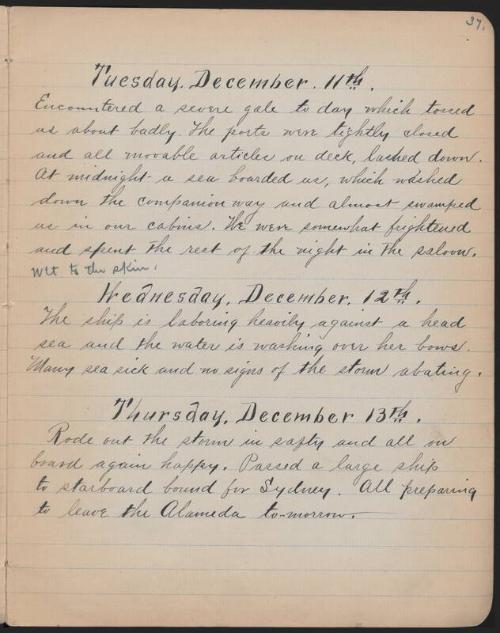 37.
Tuesday. December. 11th.
Encountered a severe gale to day which tossed
us about badly. The ports were tightly closed
and all movable articles on deck, lashed down.
At midnight a sea boarded us, which washed
down the companion way and almost swamped
us in our cabins. We were somewhat frightened
and spent the rest of the night in the saloon.
wet to the skin.
Wednesday, December. 12th.
The ship is laboring heavily against a head
sea and the water is washing over her bows.
Many sea sick and no signs of the storm abating.
Thursday, December 13th.
Rode out the storm in safty and all on
board again happy. Passed a large ship
to starboard bound for Sydney. All preparing
to leave the Alameda to-morrow.